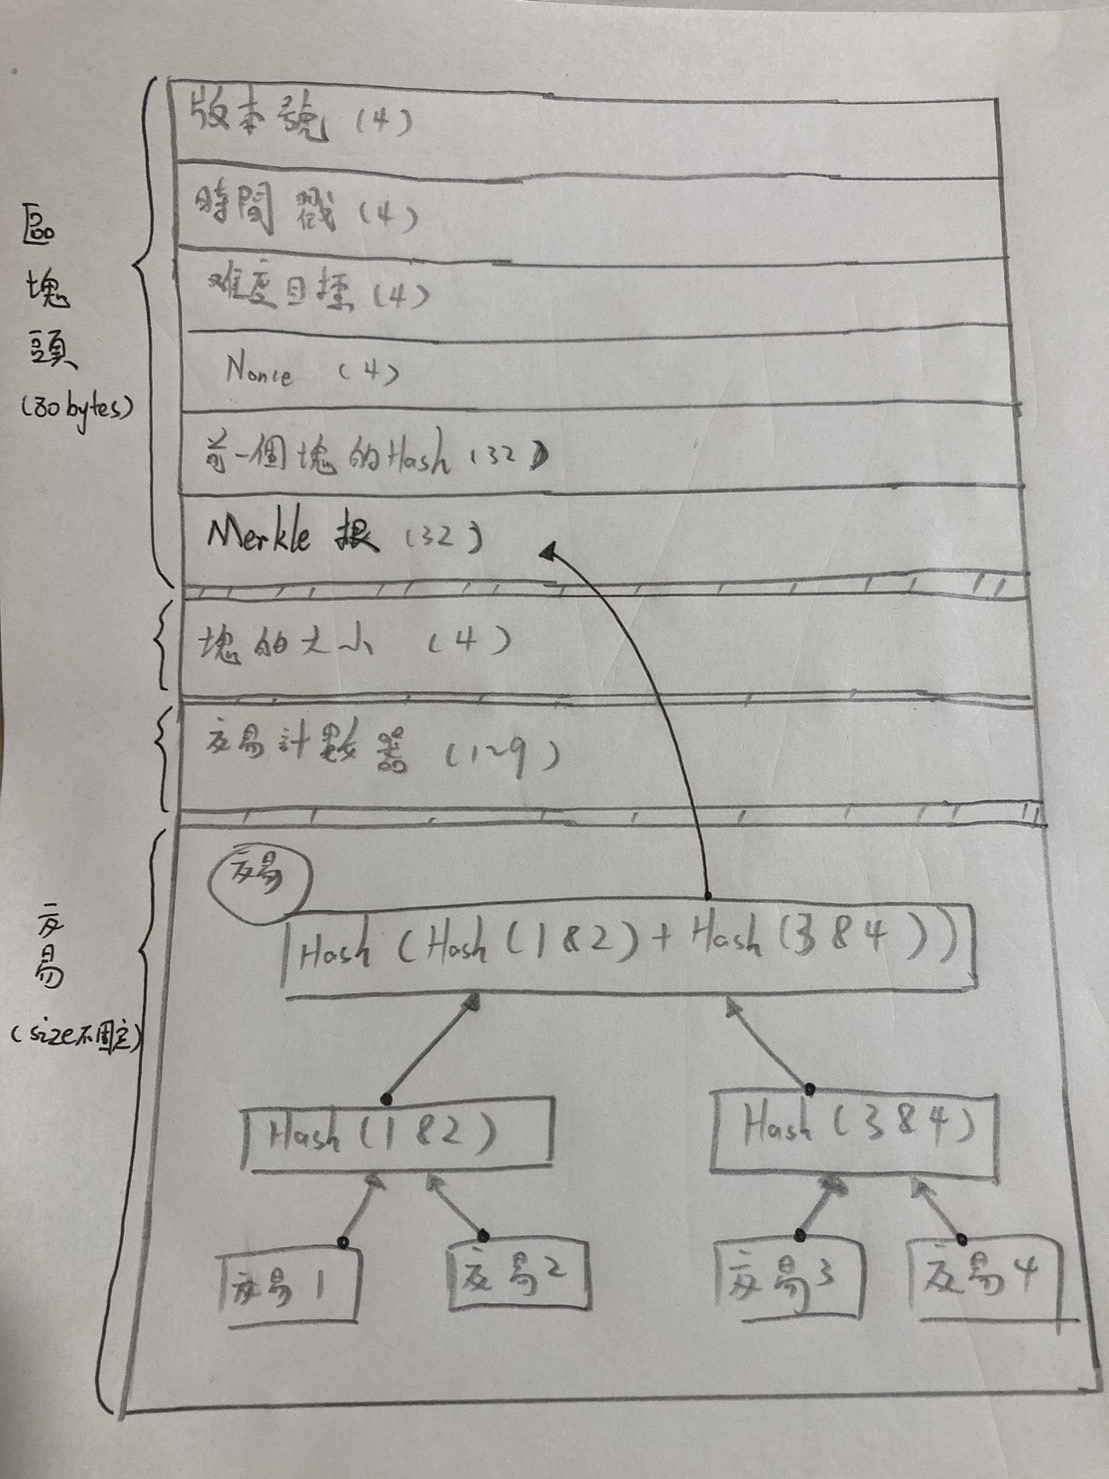 區塊頭
(80 bytes)
版本號 (4)
時間戳 (4)
难度目標 (4)
Nonce (4)
前一個塊的Hash (32)
Merkle 根 (32)
塊的大小 (4)
交易計數器 (1~9)
交易
(size不固定)
交易
Hash (Hash (1&2) + Hash (3&4))
Hash (1&2)
Hash (3&4)
交易1
交易2
交易3
交易4